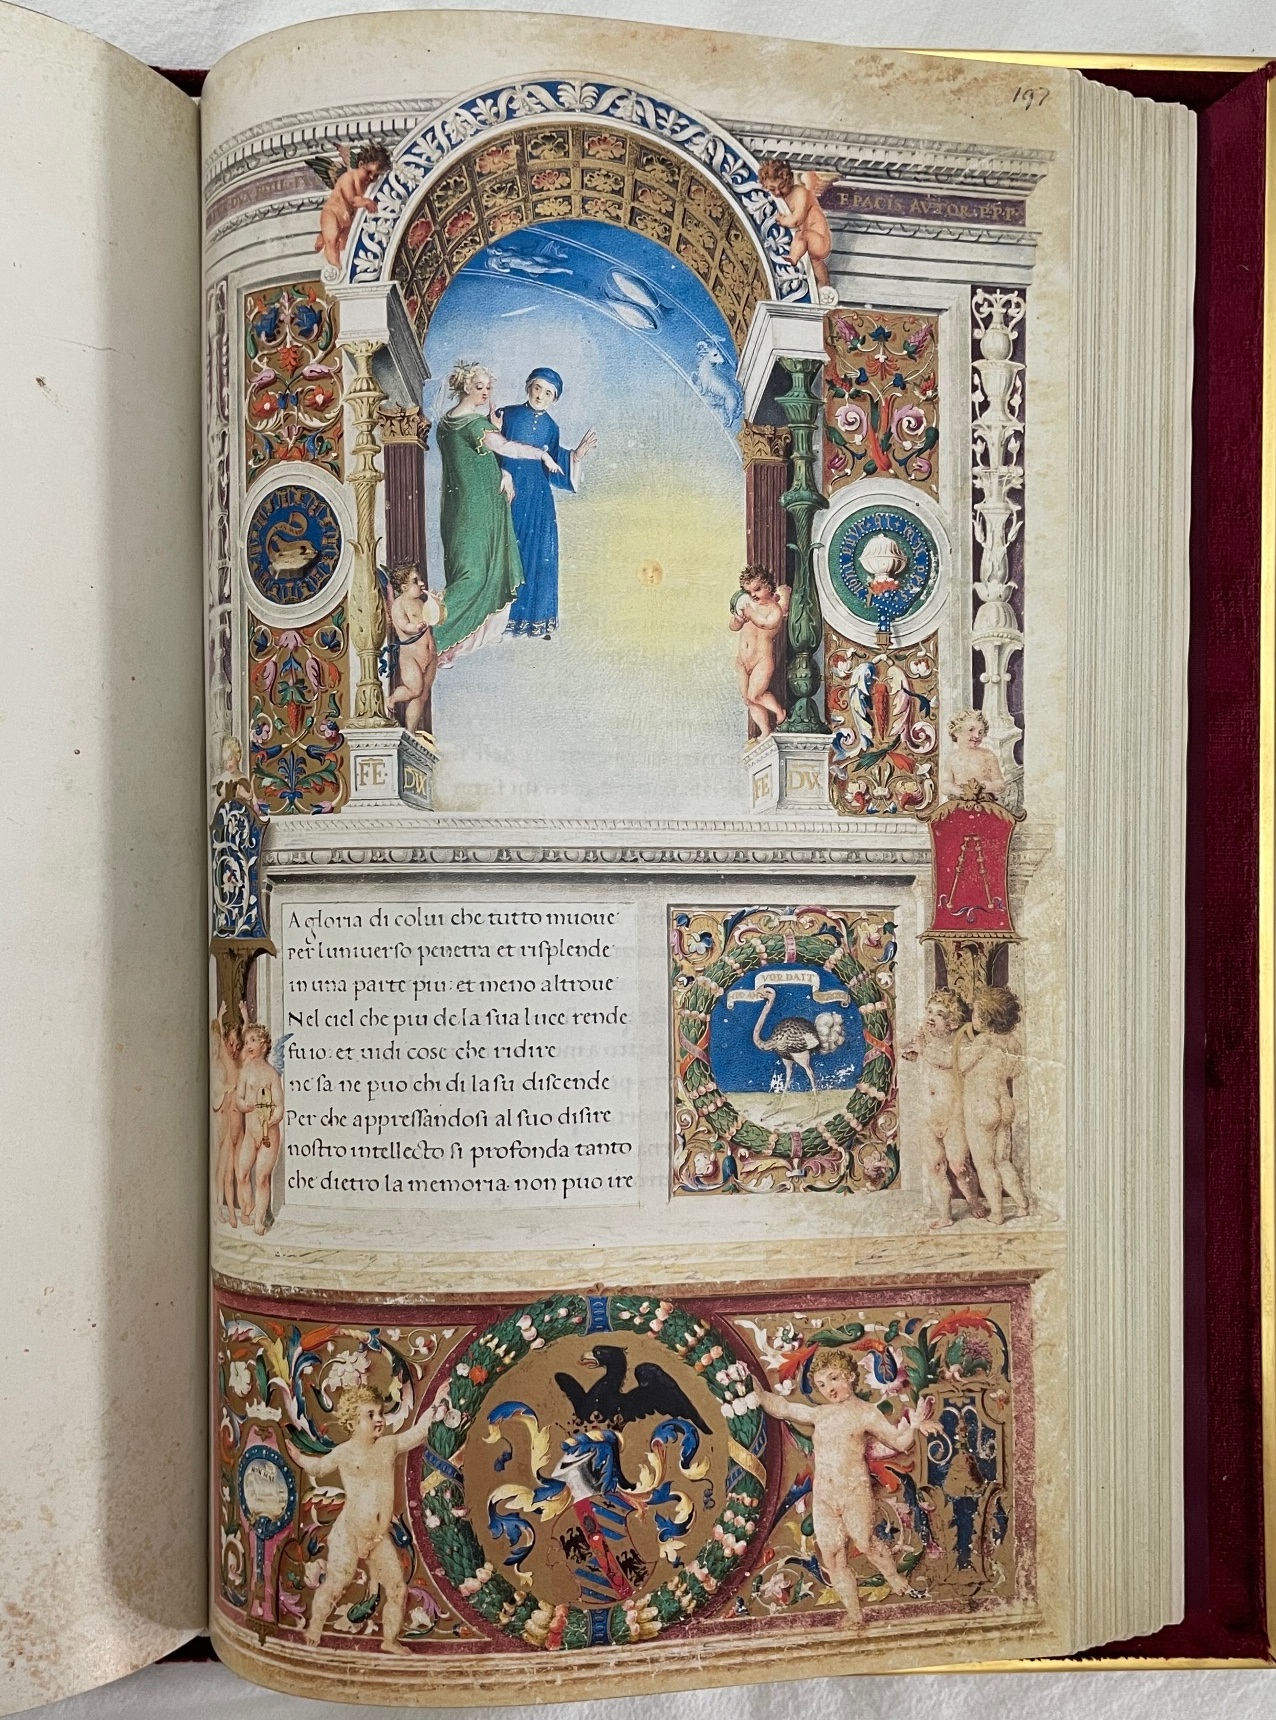 197
E PACIS AVTOR P.P.P.
FE DVX
FE DVX
A gloria di colui che tutto muoue
per luniuerso penetra et risplende
in una parte piu: et meno altroue
Nel ciel che piu de la sua luce rende
fu io: et uidi cose che ridire
ne sa ne puo chi di la su discende
Per che appressandosi al suo disire
nostro intellecto si profonda tanto
che dietro la memoria non puo ire
VERDAIT